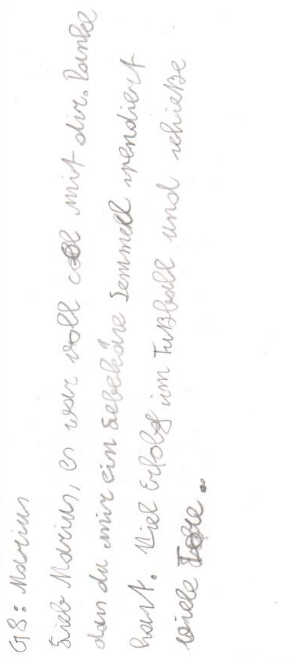 G8: Marius
Lieb Marius, es war voll cool mit dir. Danke
das du mir ein Lebekäse Semmell spendiert
hast. Viel Erfolg im Fußball und schieße
viele Tore.